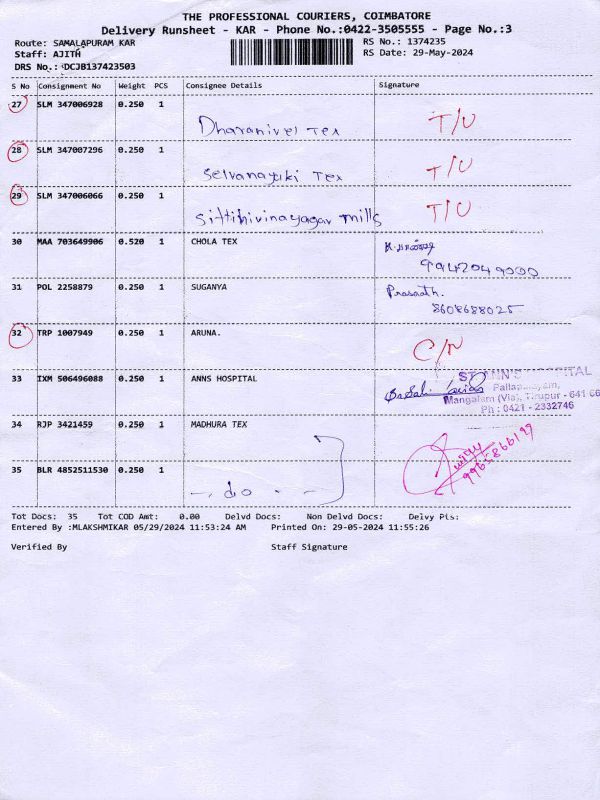 THE PROFESSIONAL COURIERS, COIMBATORE
Delivery Runsheet - KAR - Phone No.:0422-3505555 - Page No.:3
Route: SAMALAPURAM KAR RS No.: 1374235
Staff: AJITH RS Date: 29-May-2024
DRS No.: DCJB137423503
S No Consignment No Weight PCS Consignee Details Signature
27 SLM 347006928 0.250 1
Dharanivel Tex T/U
28 SLM 347007296 0.250 1
Selvanayaki Tex T/U
29 SLM 347006066 0.250 1
Sittihivinayagar mills T/U
30 MAA 703649906 0.520 1 CHOLA TEX
9942049000
31 POL 2258879 0.250 1 SUGANYA Prasaath.
8608688025
32 TRP 1007949 0.250 1 ARUNA.
C/N
33 IXM 506496088 0.250 1 ANNS HOSPITAL ST.ANN'S HOSPITAL
Pallapalayam,
Mangalam (Via), Tirupur - 641 66
Ph : 0421 - 2332746
34 RJP 3421459 0.250 1 MADHURA TEX
35 BLR 4852511530 0.250 1
-, do -
Tot Docs: 35 Tot COD Amt: 0.00 Delvd Docs: Non Delvd Docs: Delvy Pts:
Entered By :MLAKSHMIKAR 05/29/2024 11:53:24 AM Printed On: 29-05-2024 11:55:26
Verified By Staff Signature